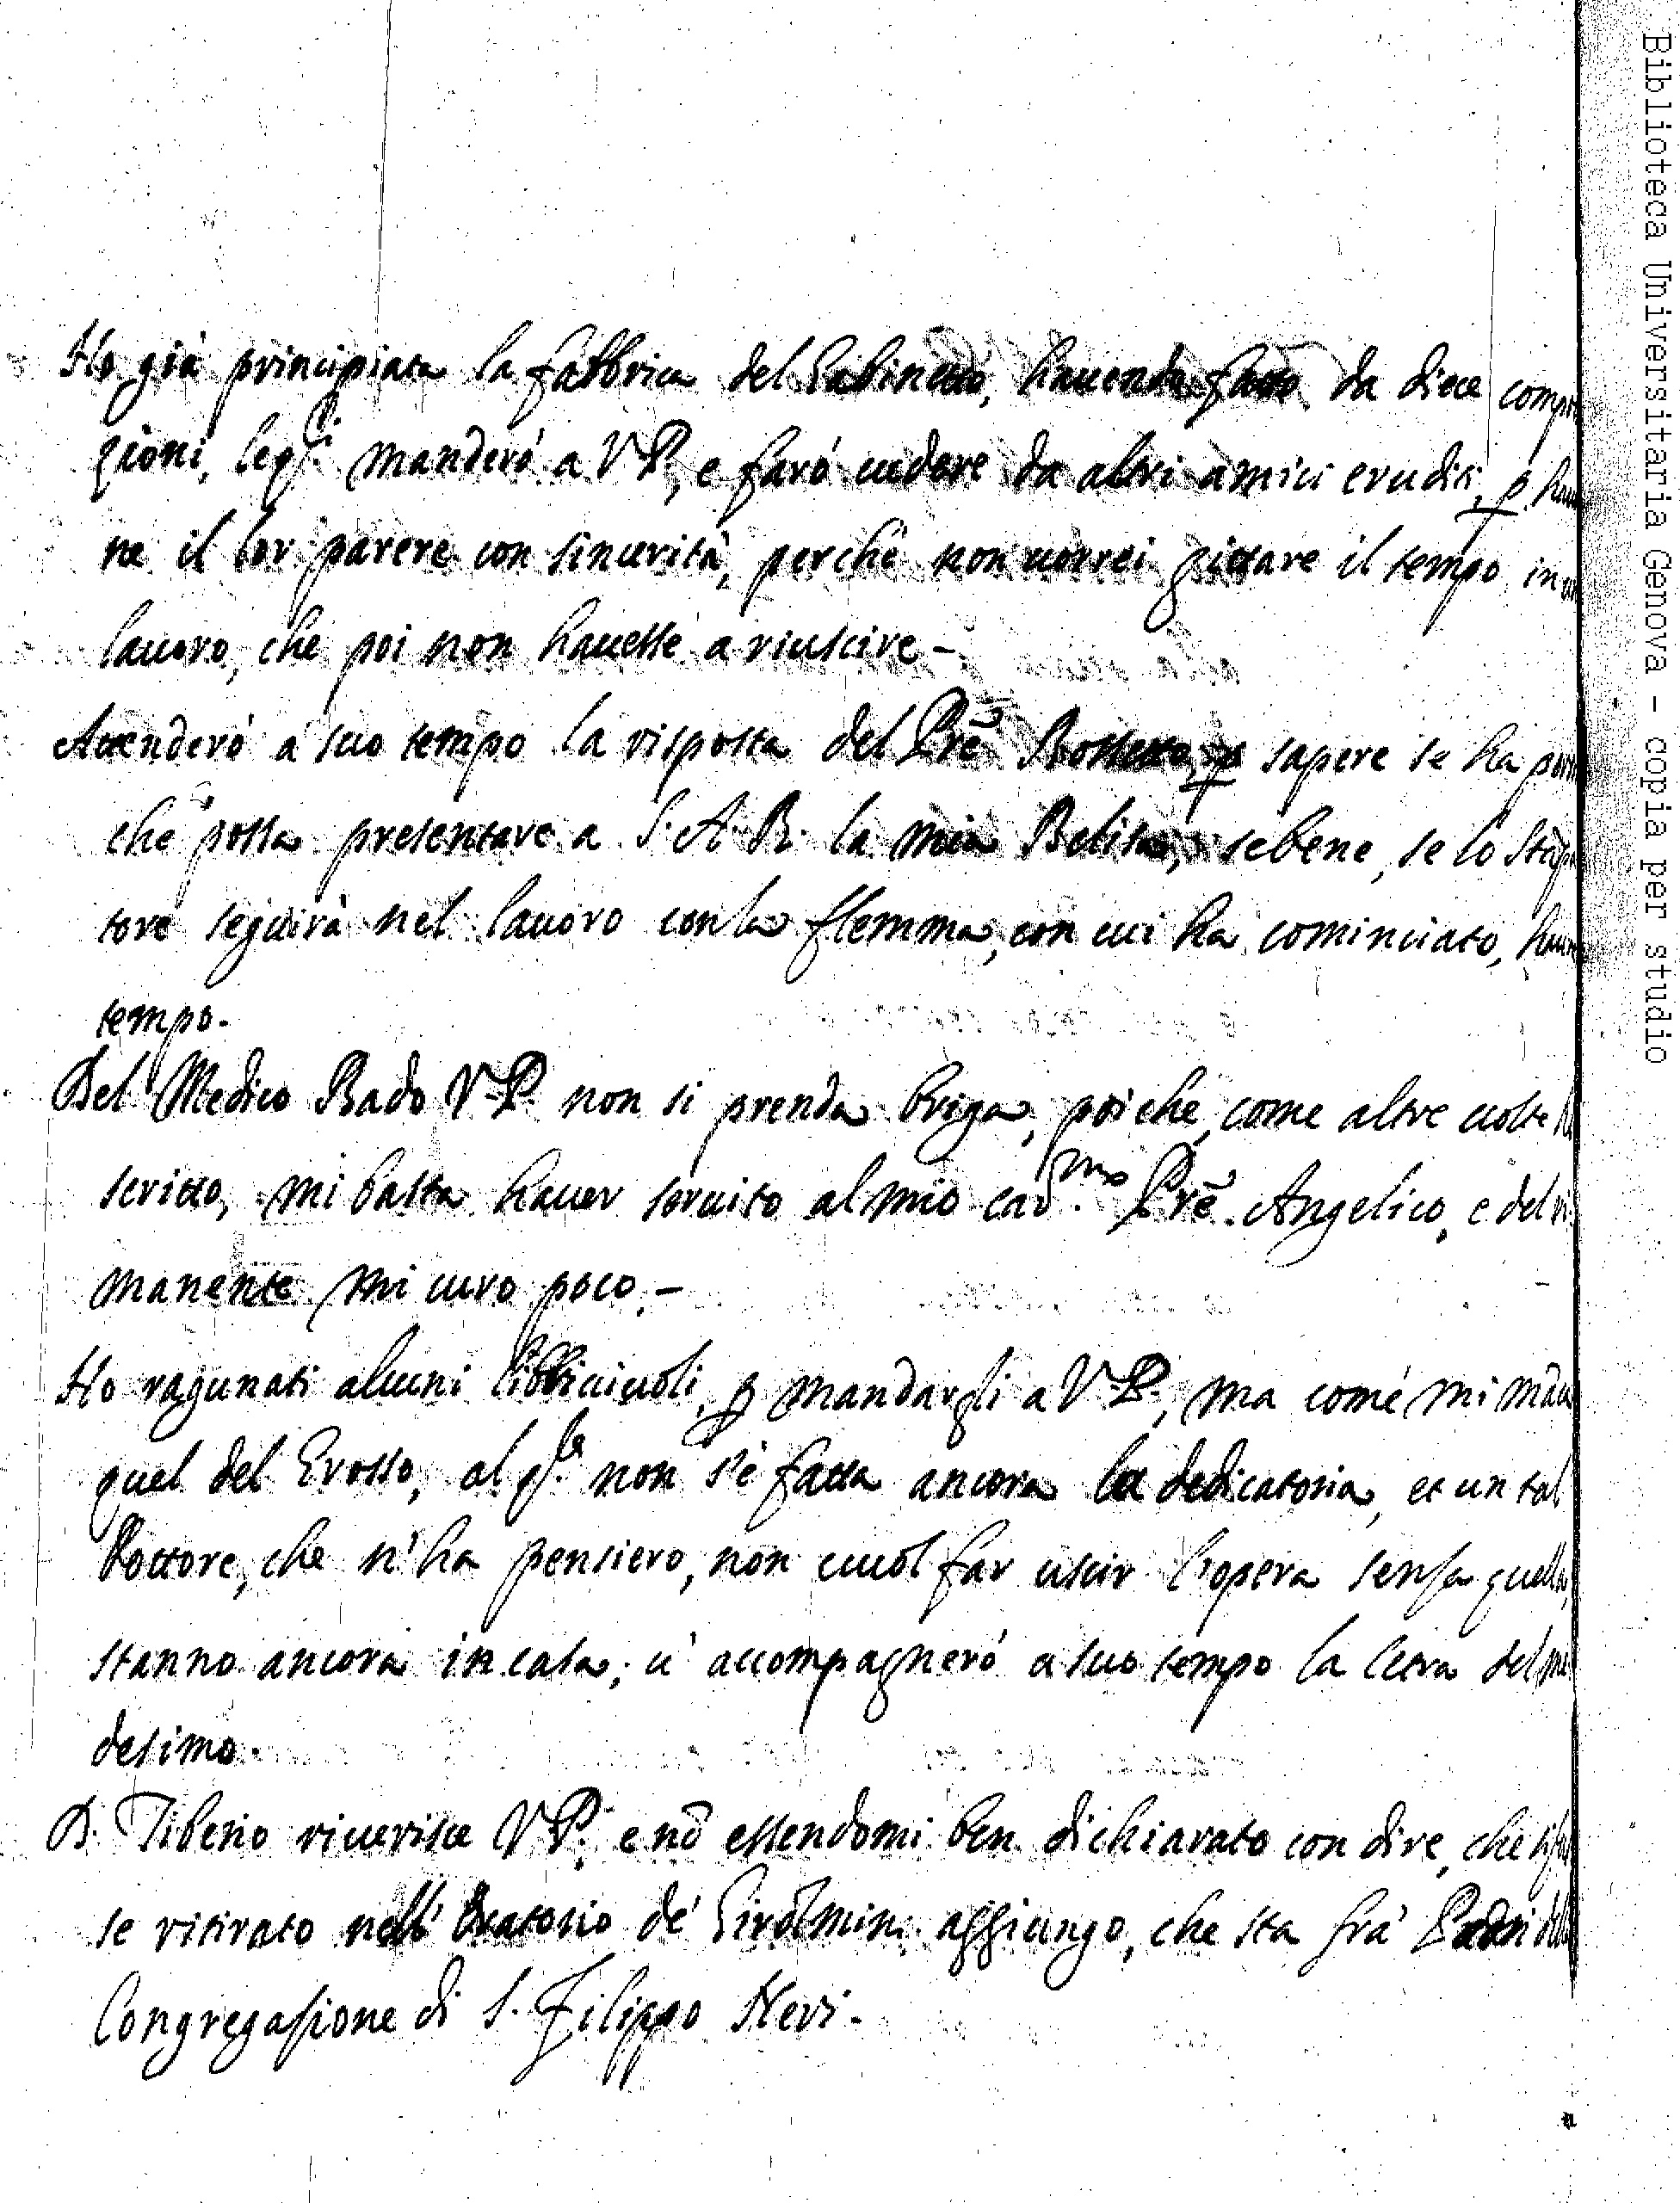 Ho già principiata la fabbrica del Gabinetto, hauendo fatto da diece compo
zioni, le q.li manderò a V. P., e farò uedere da altri amici eruditi, p hau
ne il lor parere con sincerità, perchè non uorrei gittare il tempo in un
lauoro, che poi non hauesse a riuscire -
Attenderò a suo tempo la risposta del Prē Rossetto, p sapere se ha
che possa presentare a S. A. R. la mia Belisa, sebene, se lo Stāpa
tore seguirà nel lauoro con la flemma, con cui ha cominciato,
tempo.
Del Medico Bado V. P. non si prenda briga, poiche, come altre uolte
scritto, mi basta hauer seruito al mio car.mo Prē Angelico, e del ri
manente mi curo poco. -
Ho ragunati alcuni libbriciuoli, p mandargli a V. P., ma come mi
quel del Grosso, al q.le non s'è fatta ancora la dedicatoria, et un tal
Dottore, che n'ha pensiero, non uuol far uscir l'opera senza quella,
stanno ancora in casa; u' accompagnerò a suo tempo la lettera del me
desimo.
D. Tiberio riuerisce V. P. e nō essendomi ben dichiarato con dire, che
se ritirato nell' Oratorio de' Girolmini aggiungo, che sta frà Padri della
Congregazione di S. Filippo Neri.
Biblioteca Universitaria Genova - copia per studio